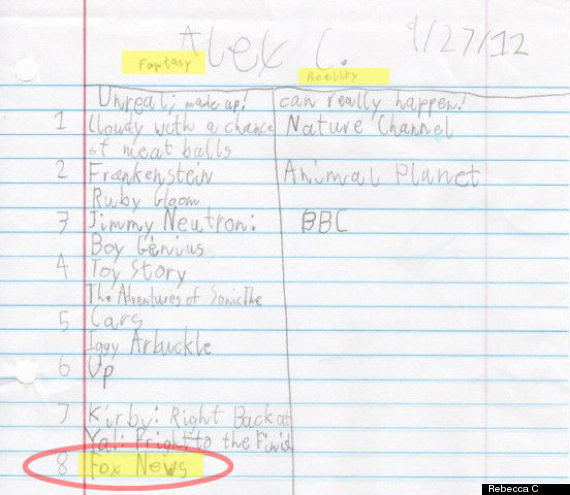 Alex C.
9/27/12
Fantasy
Reality
Unreal; made up!
can really happen!
1 Cloudy with a chance
Nature Channel
of meat balls
2 Frankenstein
Animal Planet
Ruby Gloom
3 Jimmy Neutron:
BBC
Boy Genius
4 Toy Story
The Adventures of Sonic The
5 Cars
Iggy Arbuckle
6 Up
7 Kirby: Right Back at
Ya!: Fright to the
8 Fox News
Rebecca C